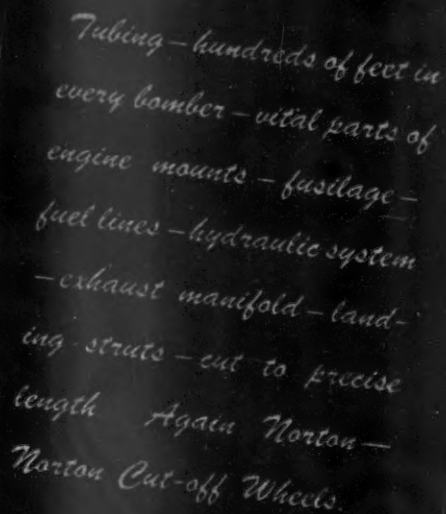 Tubing—hundreds of feet in
every bomber—vital parts of
engine mounts—fusilage—
fuel lines—hydraulic system
—exhaust manifold—land-
ing struts—cut to precise
length Again Norton—
Norton Cut-off Wheels.